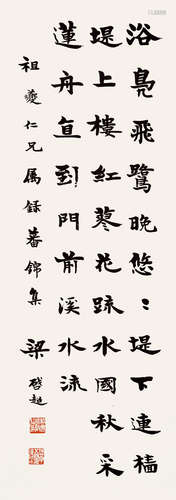 浴鳧飛鷺晚悠〻堤下連檣
堤上樓紅蓼花疏水國秋采
蓮舟直到門前溪水流
祖夔仁兄属録蕃錦集 梁啓超